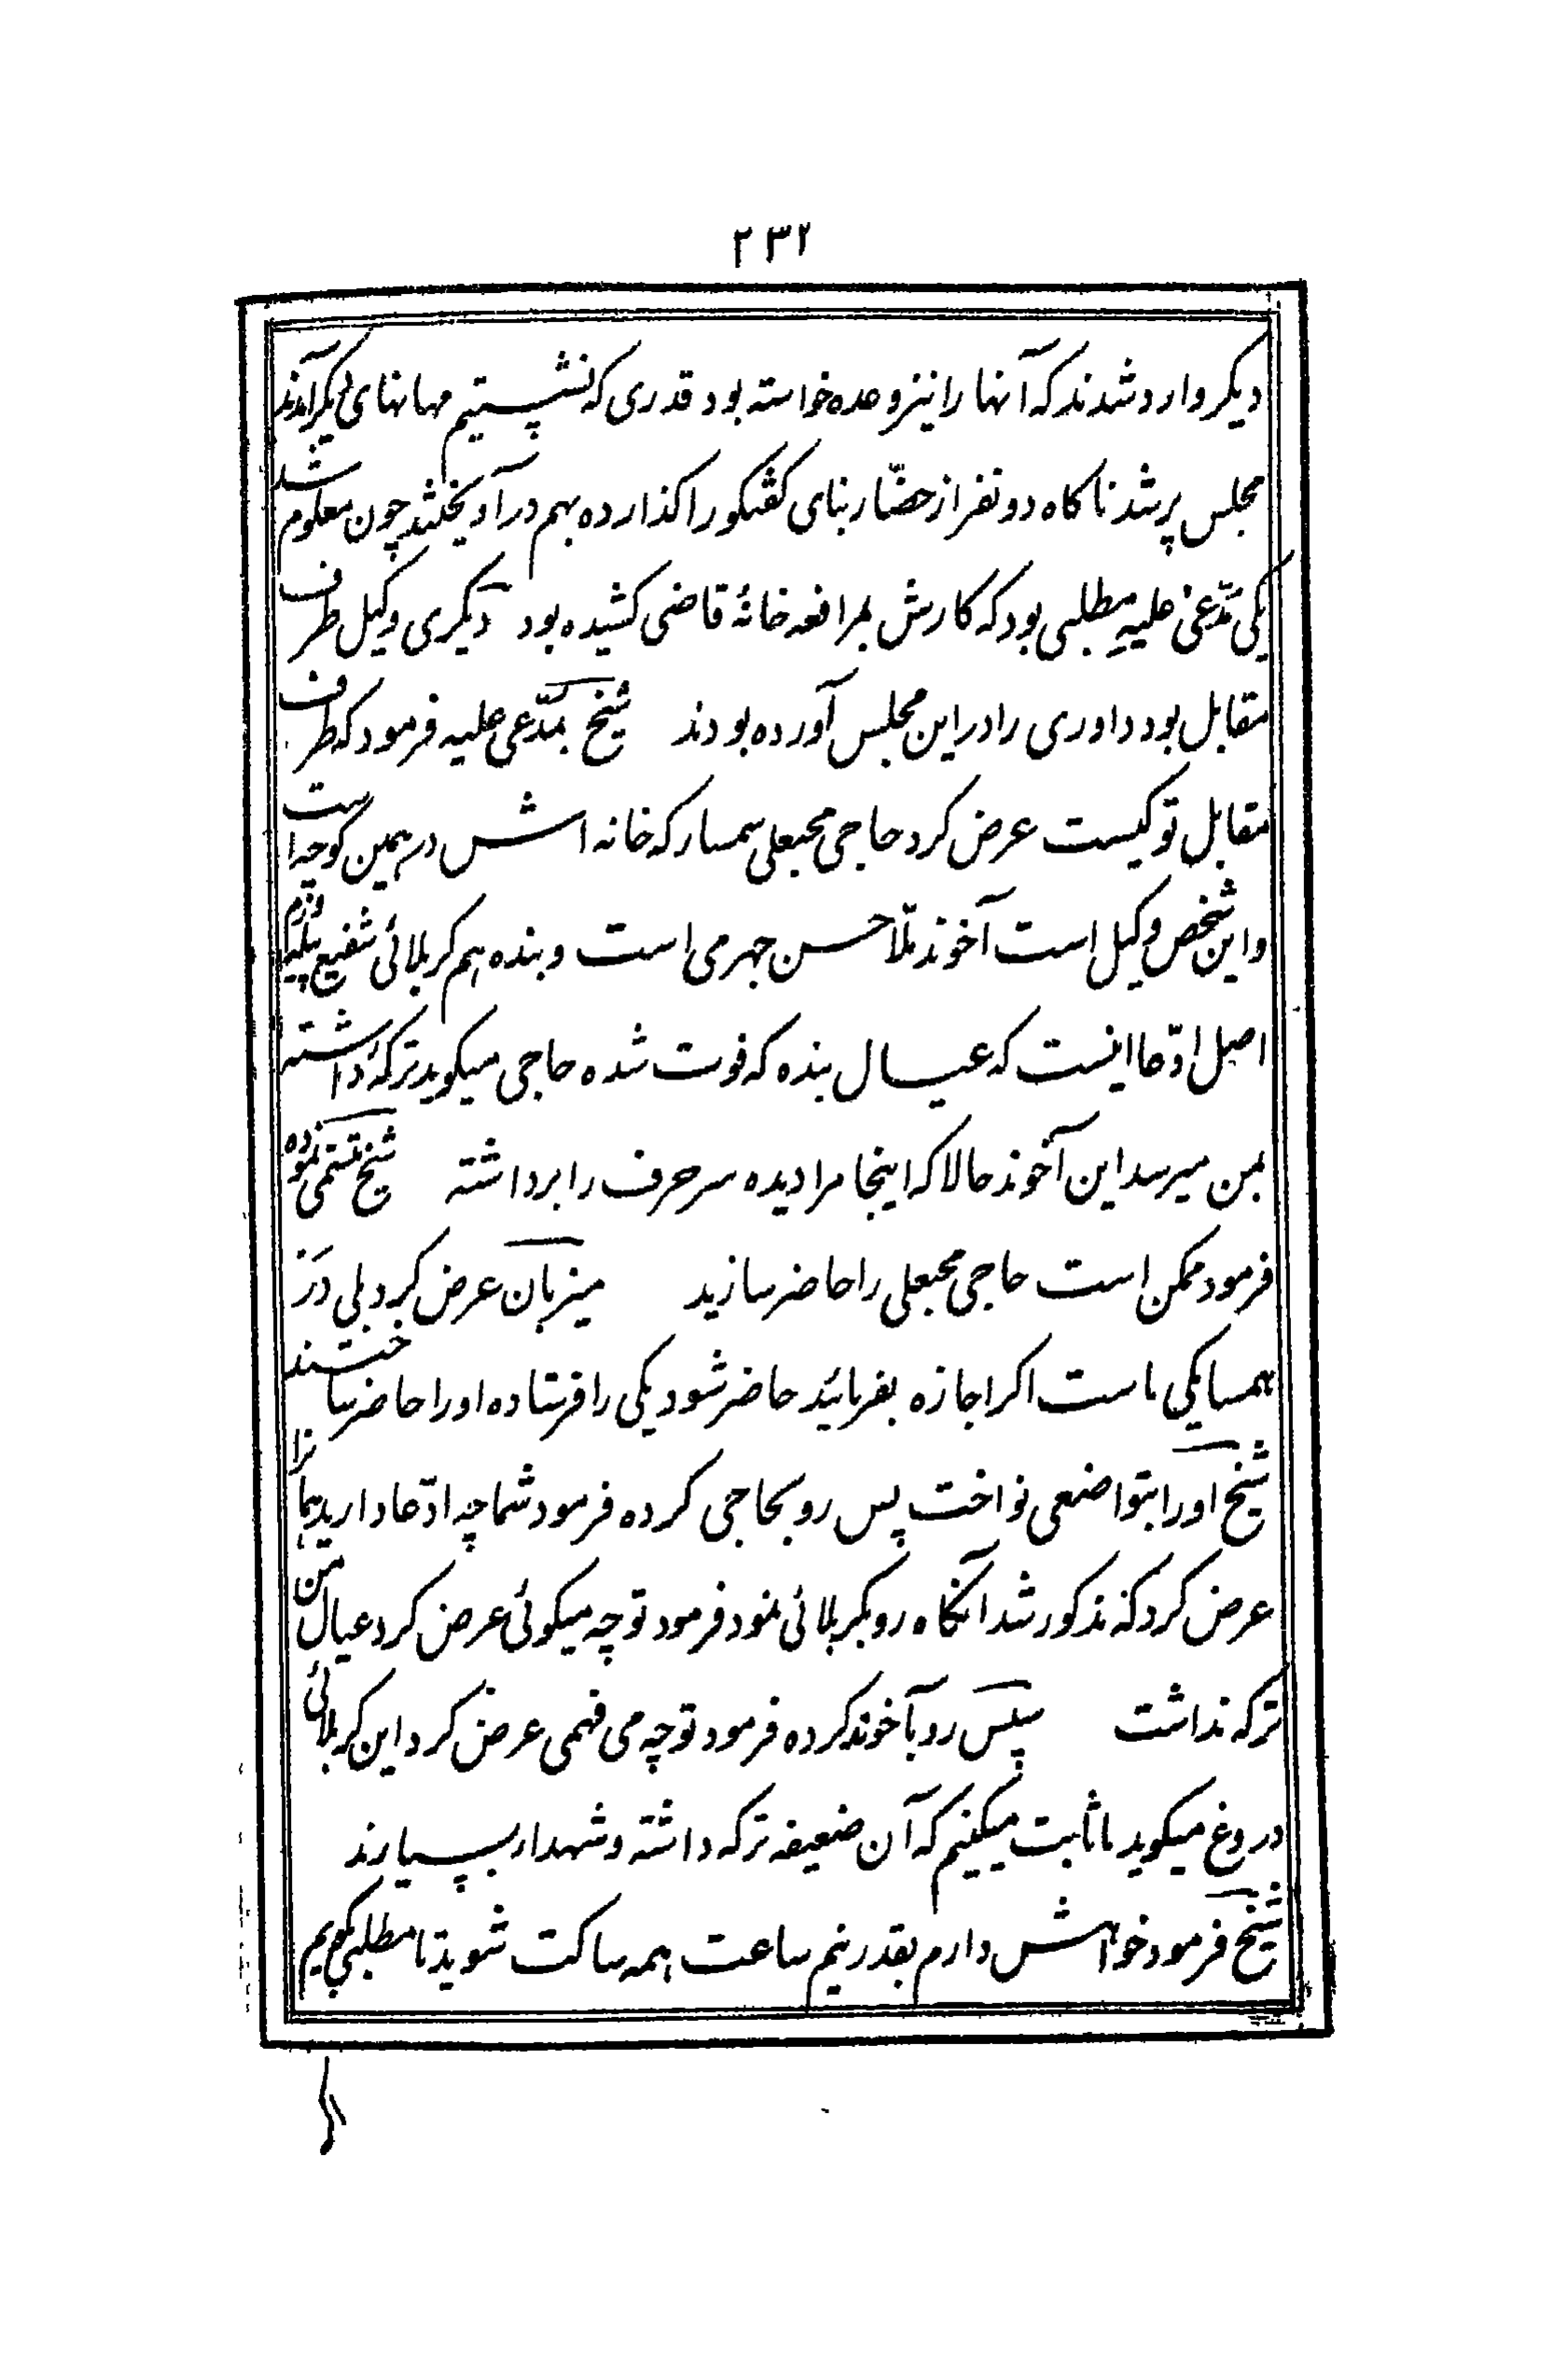 ۲۳۲
دیکر وارد شدند که آنها را نیز وعده خواسته بود قدری که نشستیم مهمانهای دیکر آمدند
مجلس پر شد ناکاه دو نفر از حضّار بنای کفتکو را کذارده بهم درآویختند چون معلوم شد
یکی مدّعی علیهِ مطلبی بود که کارش بمرافعه خانهٔ قاضی کشیده بود دیکری وکیل طرف
مقابل بود داوری را در این مجلس آورده بودند شیخ بمدّعی علیه فرمود که طرف
مقابل تو کیست عرض کرد حاجی محبعلی سمسار که خانه اش در همین کوچه است
و این شخص وکیل است آخوند ملّا حسن جهرمی است و بنده هم کربلائی شفیع پیله ورم
اصل ادّعا اینست که عیال بنده که فوت شده حاجی میکوید ترکهٔ داشته
بمن میرسد این آخوند حالا که اینجا مرا دیده سر حرف را برداشته شیخ تبسّمی نموده
فرمود ممکن است حاجی محبعلی را حاضر سازید میزبان عرض کرد بلی در
همسایکی ماست اکر اجازه بفرمائید حاضر شود یکی را فرستاده او را حاضر ساختند
شیخ او را بتواضعی نواخت پس رو بحاجی کرده فرمود شما چه ادّعا دارید همانرا
عرض کرد که مذکور شد آنکاه رو بکربلائی نمود فرمود تو چه میکوئی عرض کرد عیال من
ترکه نداشت سپس رو بآخوند کرده فرمود تو چه می فهمی عرض کرد این کربلائی
دروغ میکوید ما ثابت میکنیم که آن ضعیفه ترکه داشته و شهدا بسیارند
شیخ فرمود خواهش دارم بقدر نیم ساعت همه ساکت شوید تا مطلبی بگویم